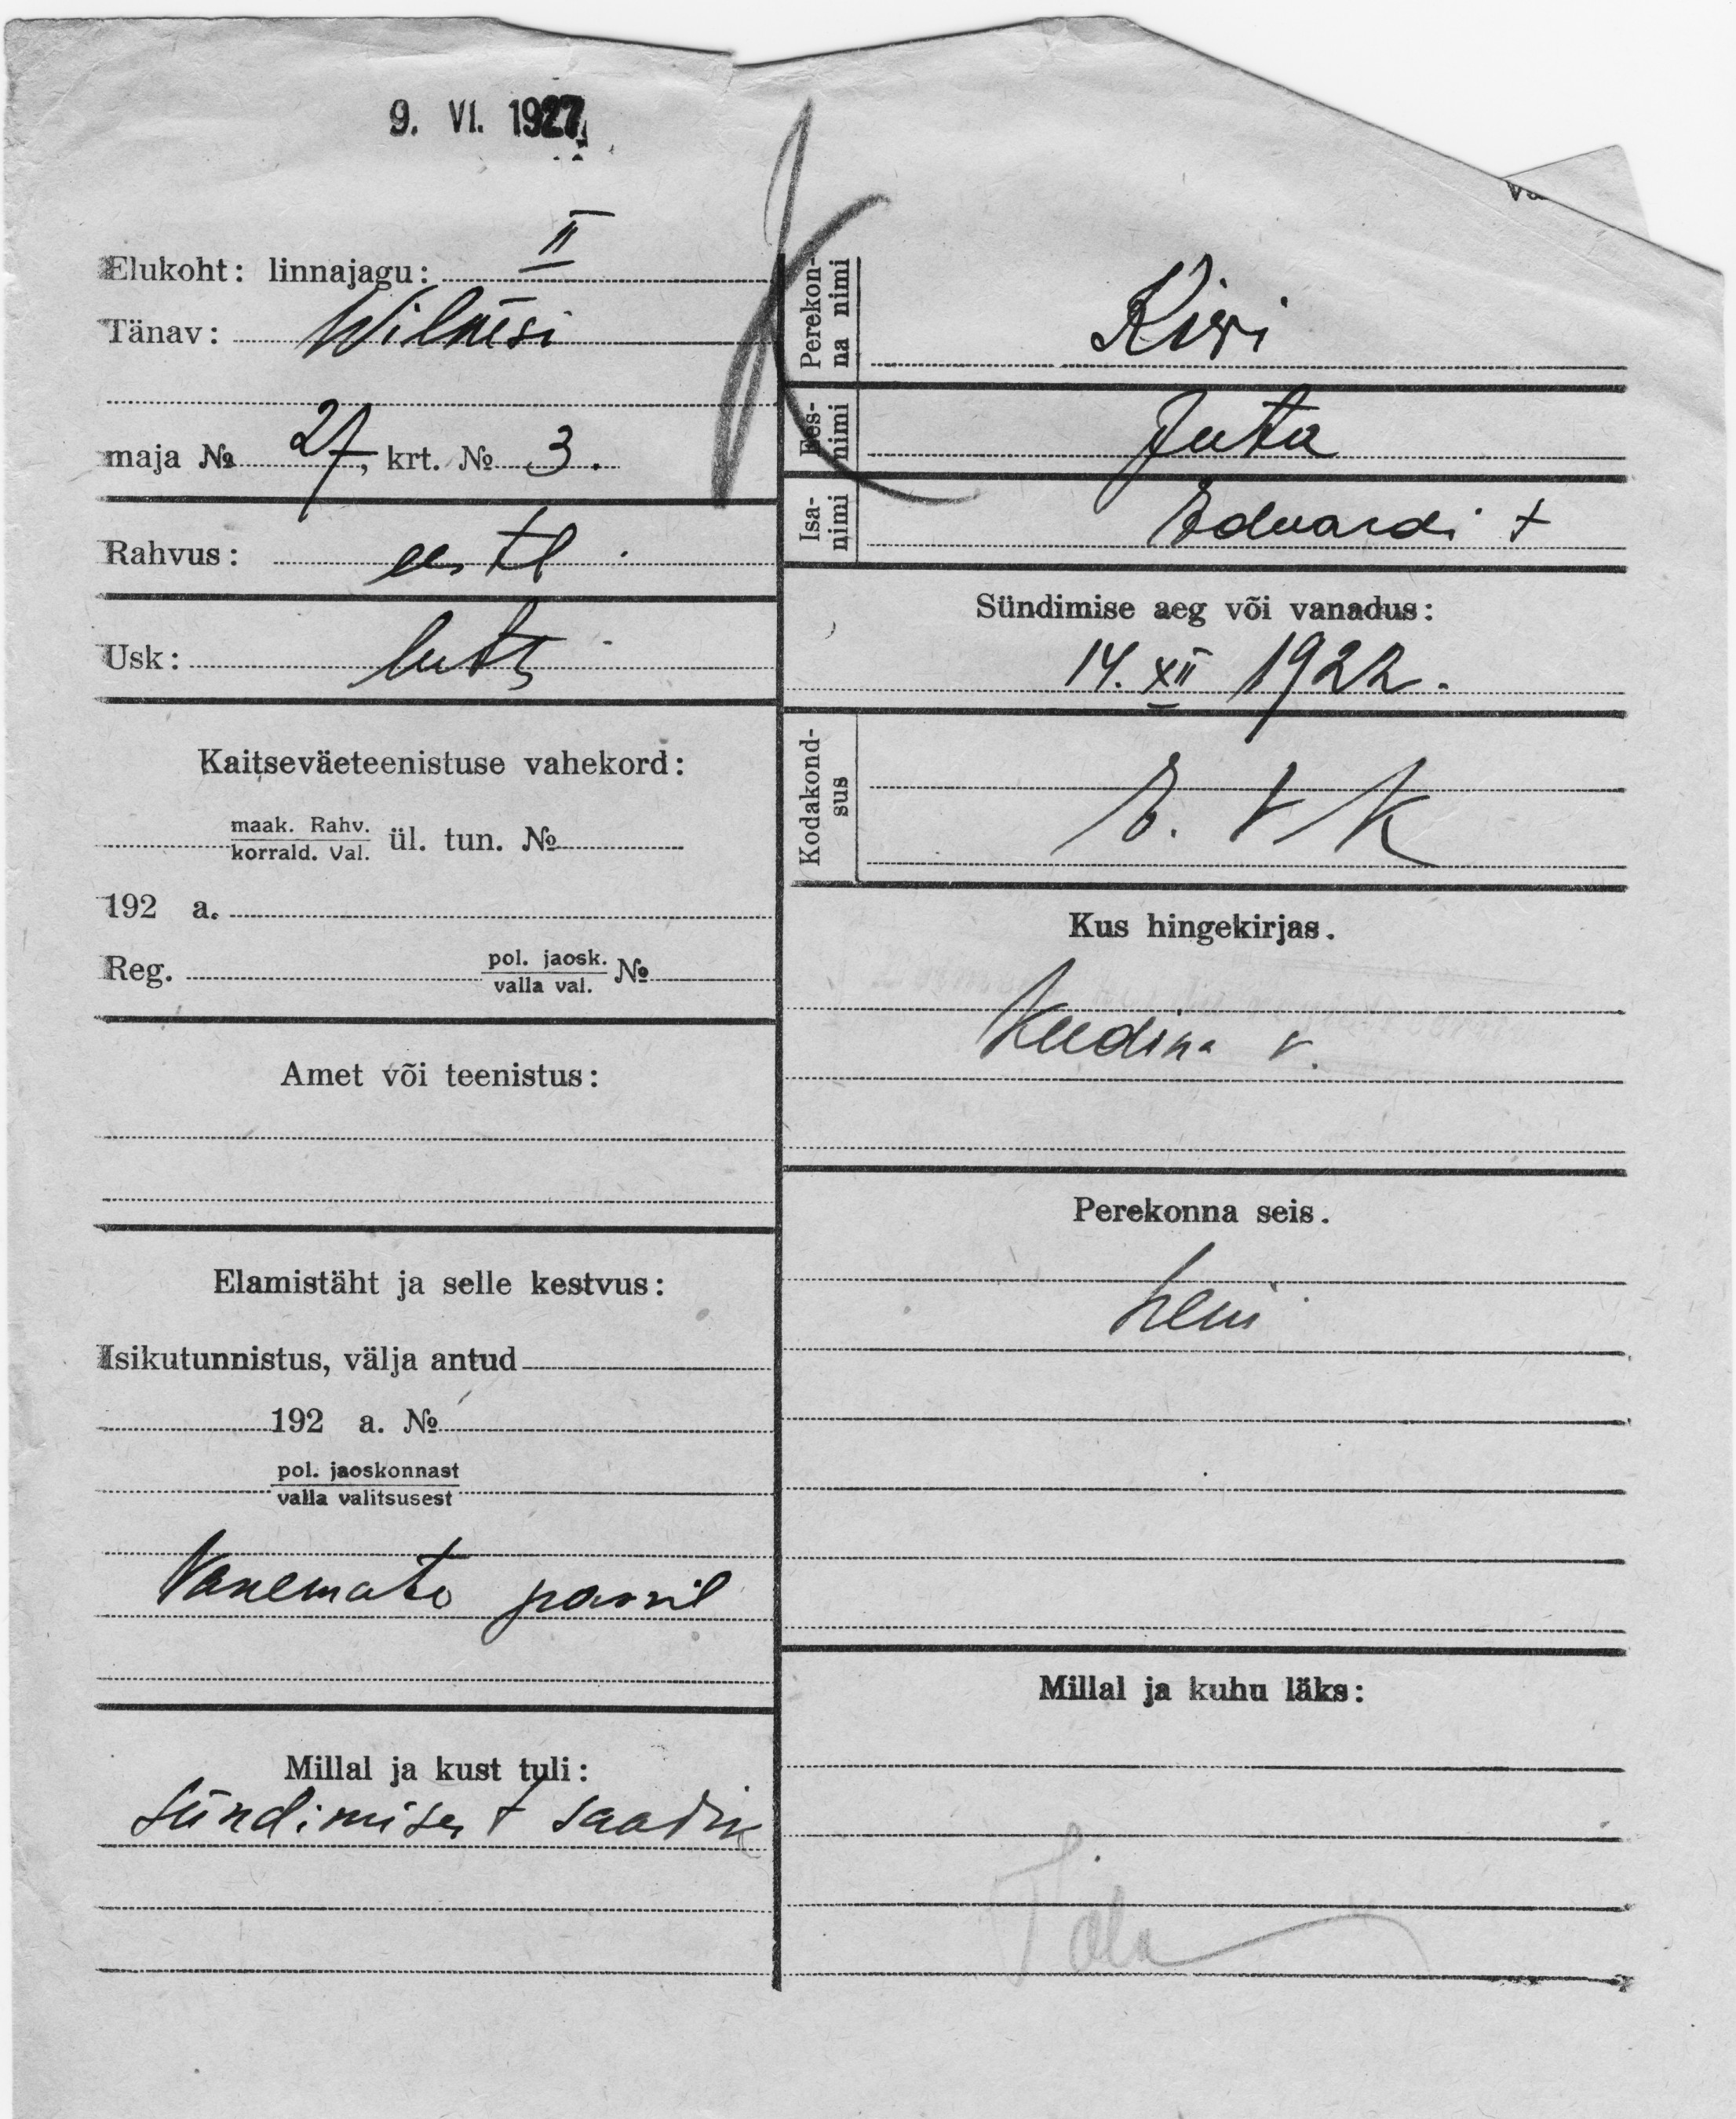 9. VI. 1927
Elukoht: linnajagu: II
Tänav: Wilmsi
maja № 27, krt. № 3.
Rahvus: eestl
Usk: luts
Kaitseväeteenistuse vahekord:
maak. Rahv.
korrald. Val. ül. tun. №
192 a.
Reg. pol. jaosk.
valla val. №
Amet või teenistus:
Elamistäht ja selle kestvus:
Isikutunnistus, välja antud
192 a. №
pol. jaoskonnast
valla valitsusest
Vanemate passil
Millal ja kust tuli:
sündimisest saadik
Perekon-
na nimi
Kivi
Ees-
nimi
Juta
Isa-
nimi
Eduardi t
Sündimise aeg või vanadus:
14. XII 1922.
Kodakond-
sus
E. v k
Kus hingekirjas.
Kudina v.
Perekonna seis.
Millal ja kuhu läks: